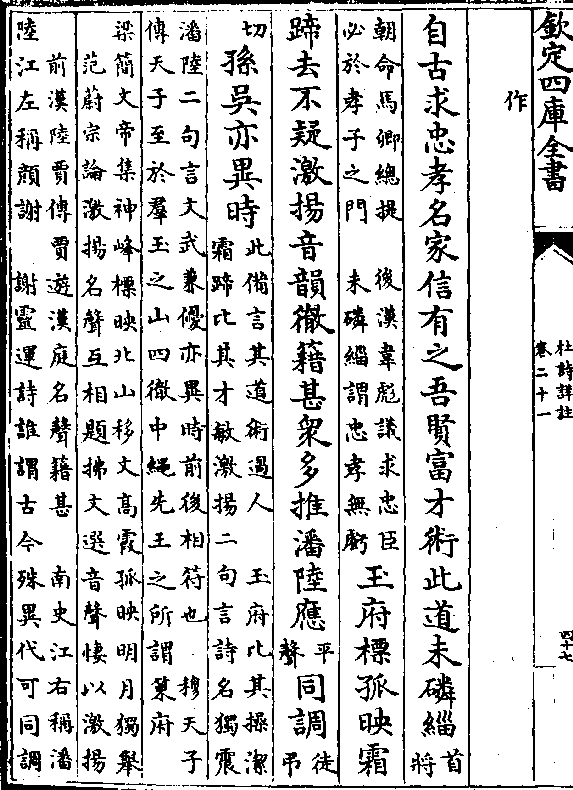 欽定四庫全書
杜詩詳註
卷二十一
四十七
作
自古求忠孝名家信有之吾賢富才術此道未磷緇
首
將
朝命馬卿總提 後漢韋彪議求忠臣
必於孝子之門 未磷緇謂忠孝無虧
玉府標孤映霜
蹄去不疑激揚音韻徹籍甚衆多推潘陸應
平
聲
同調
徒
弔
切
孫吳亦異時
此備言其道術過人 玉府比其操潔
霜蹄比其才敏激揚二句言詩名獨震
潘陸二句言文武兼優亦異時前後相符也 穆天子
傳天子至於羣玉之山四徹中繩先王之所謂策府
梁簡文帝集神峰標映北山移文高霞孤映明月獨舉
范蔚宗論激揚名聲互相題拂文選音聲悽以激揚
前漢陸賈傳賈遊漢庭名聲籍甚 南史江右稱潘
陸江左稱顔謝 謝靈運詩誰謂古今殊異代可同調